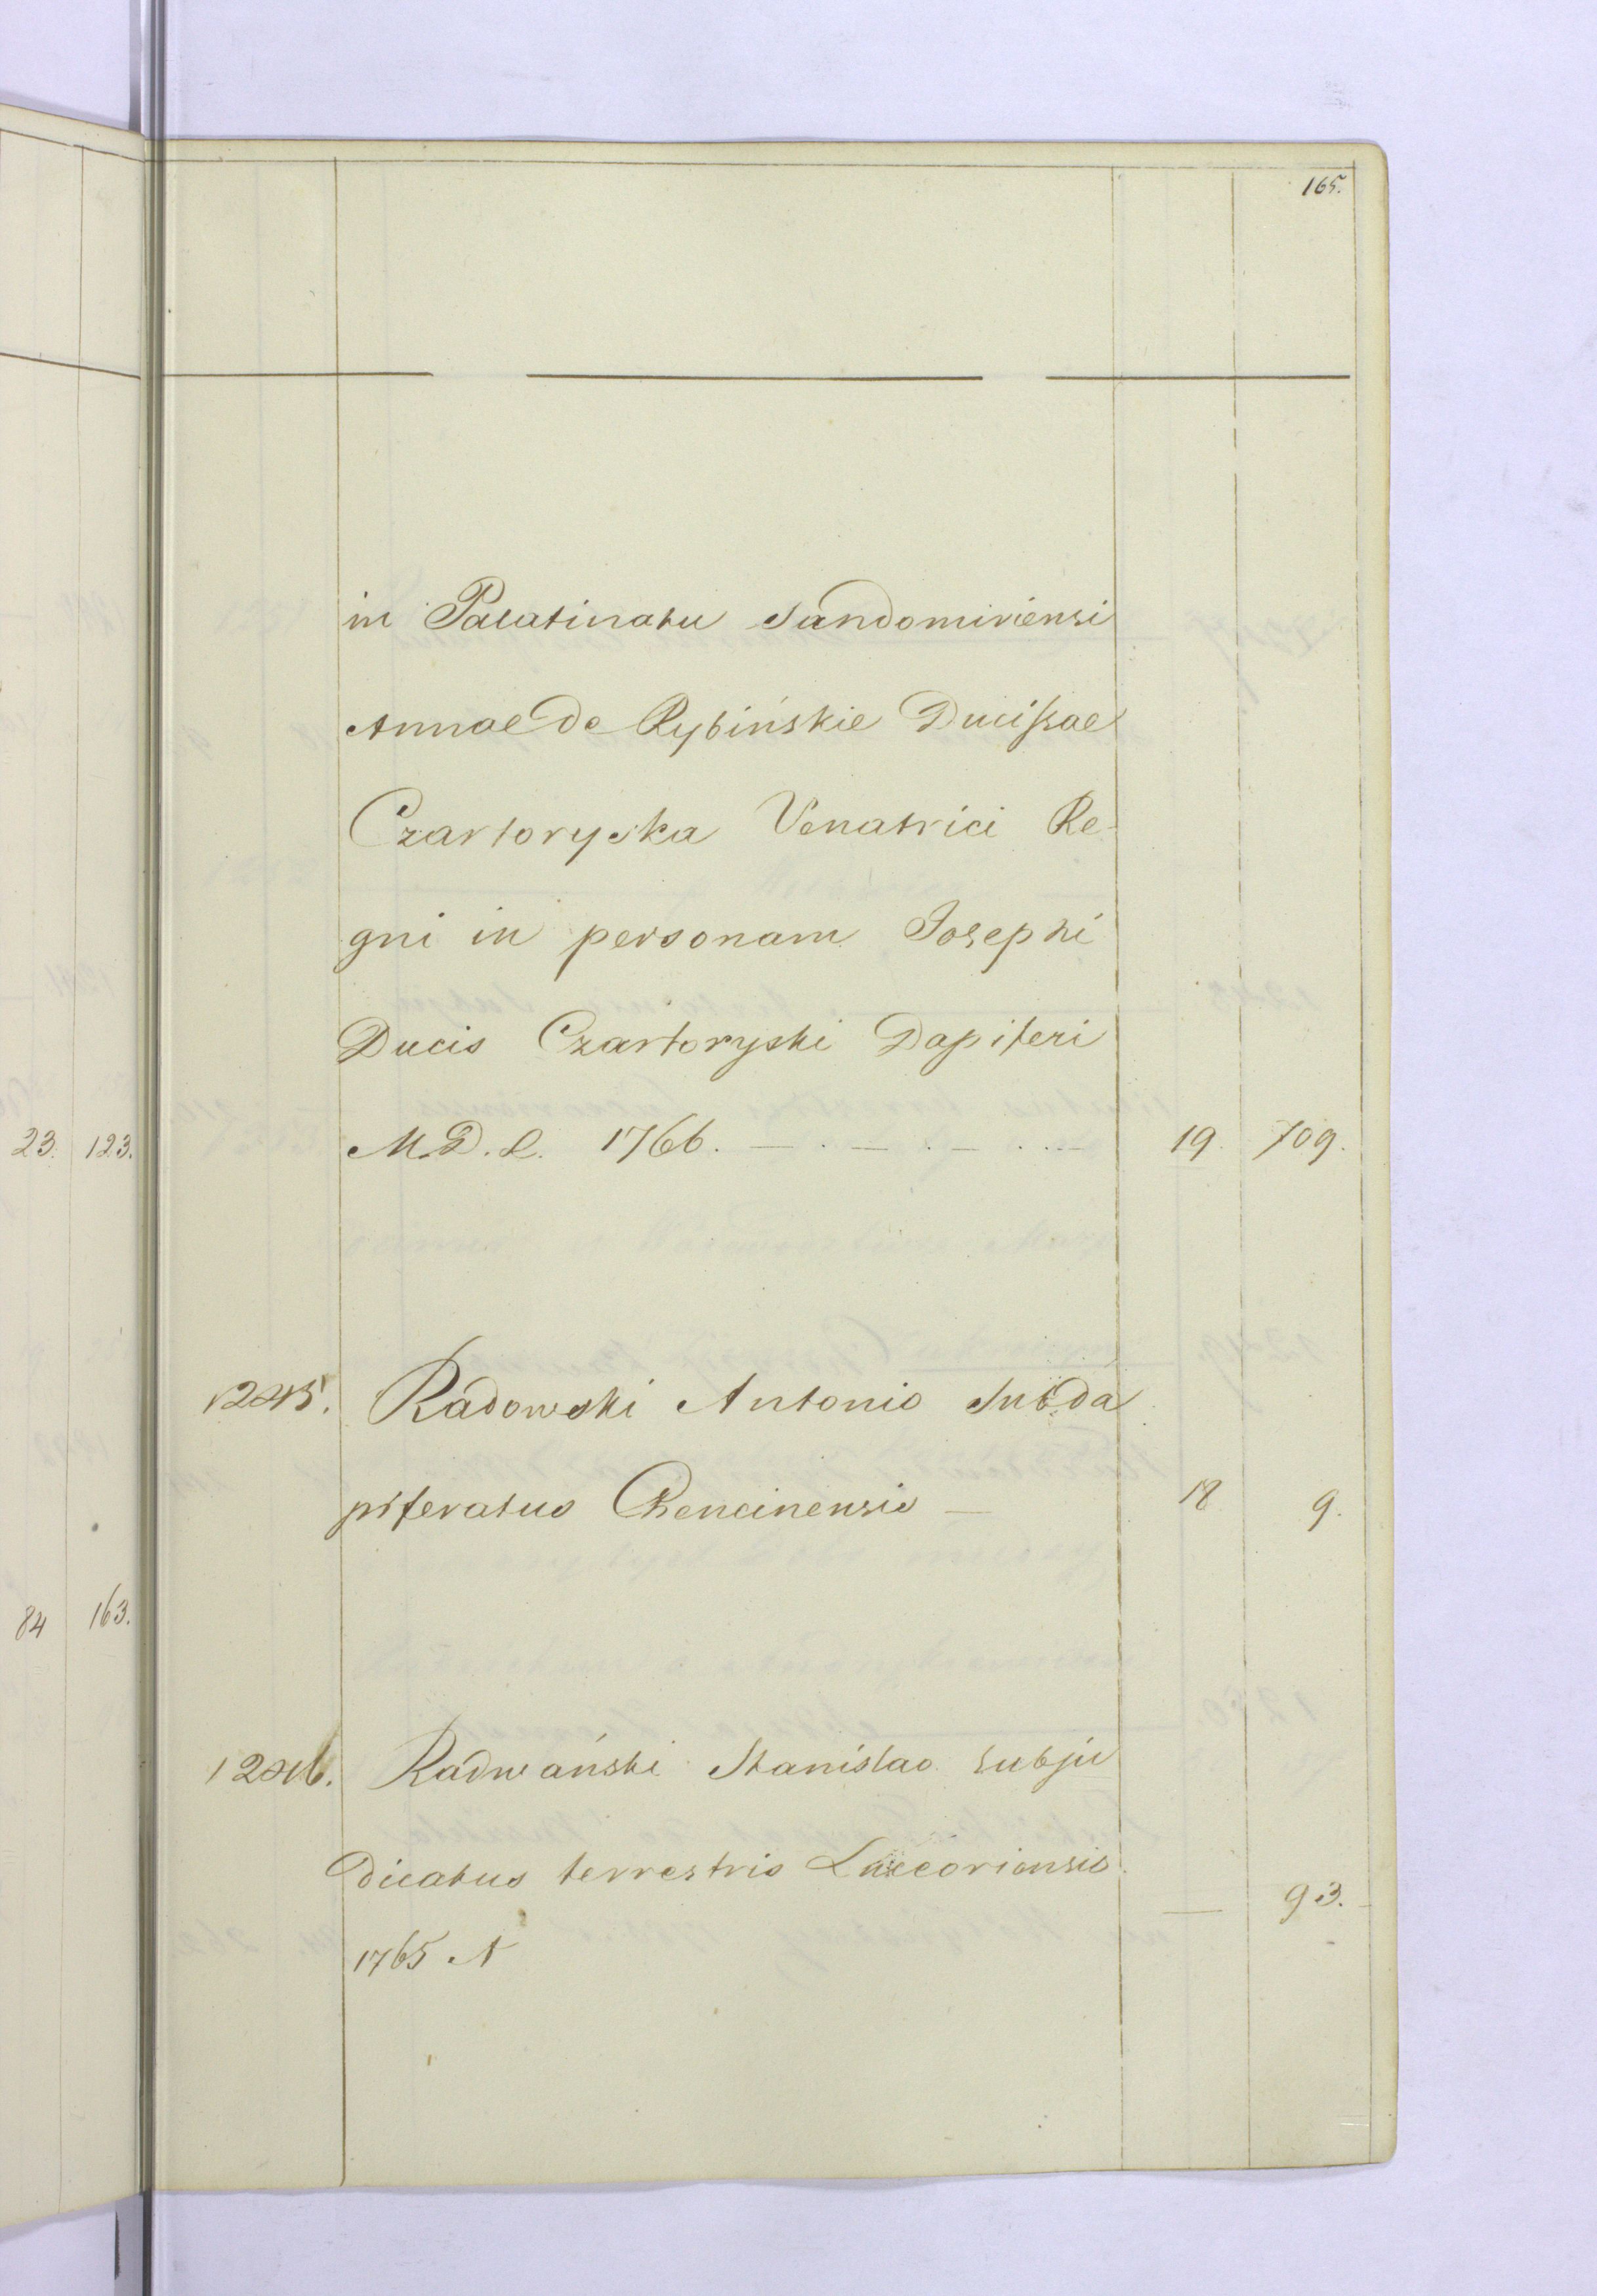 165.
in Palatinatu Sandomiriensi
Annae de Rybińskie Ducissae
Czartoryska Venatrici Re-
gni in personam Josephi
Ducis Czartoryski Dapiferi
23. 123.
M.D.L. 1766. — . — . — . . — 19. 709.
1245. Radowski Antonio Subda
piferatus Chencinensis — 18 9.
84 163.
1246. Radwański Stanislao subju
dicatus terrestris Lucceoriensis.
— 93.
1765 N